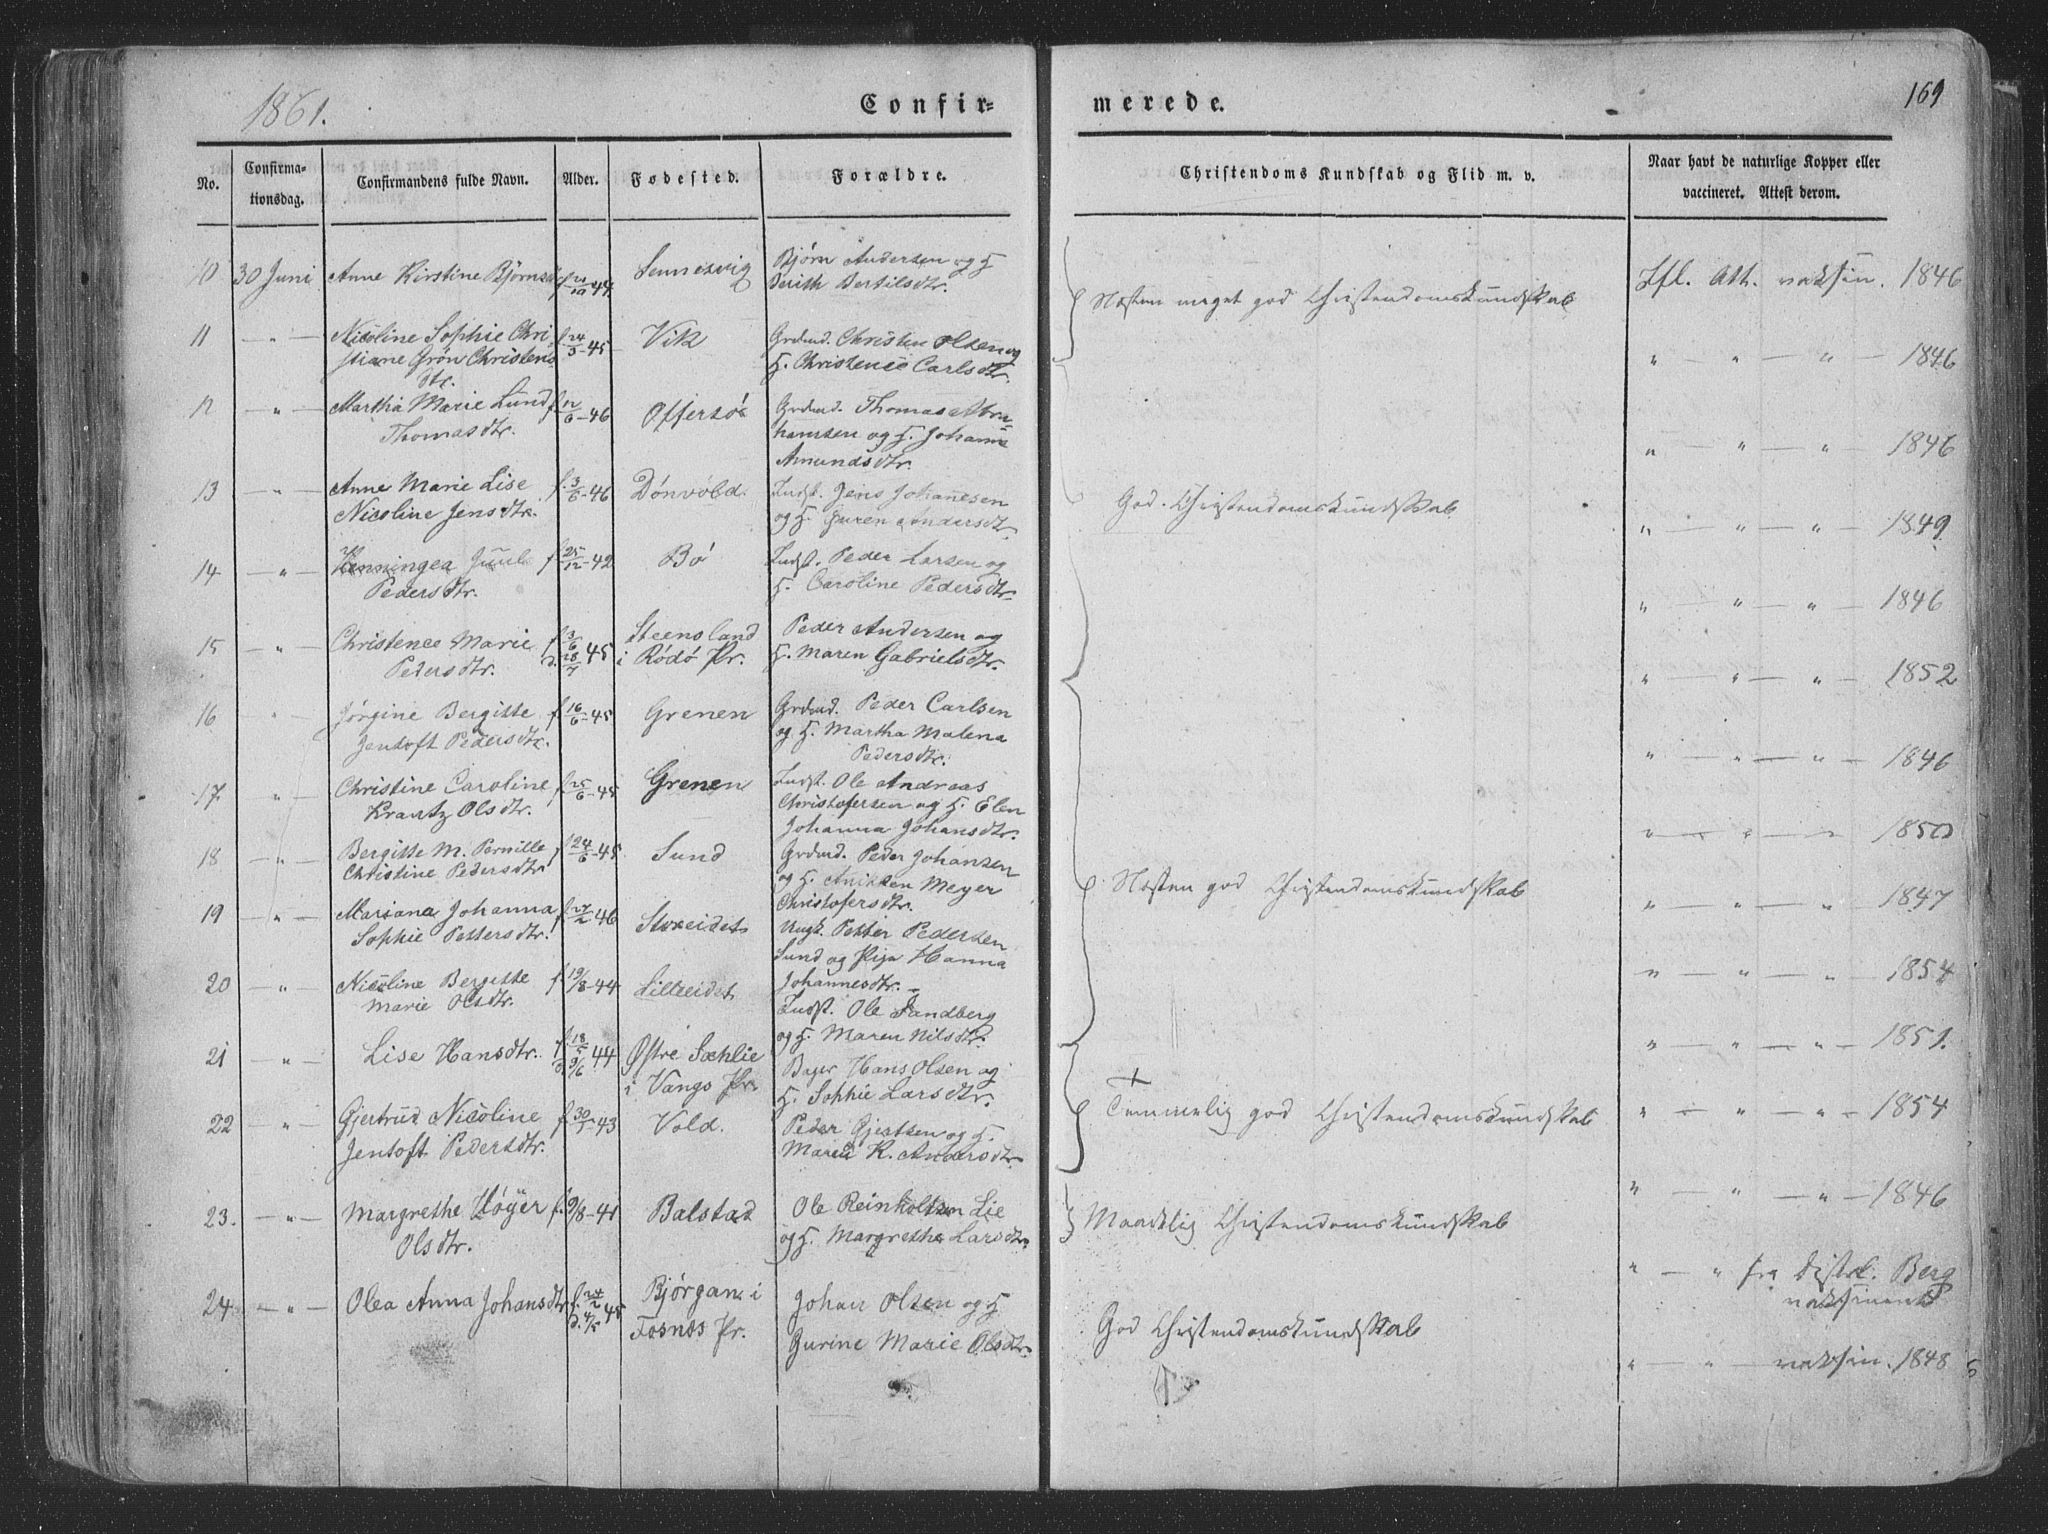 1861.
Confir=
merede.
169
No.
Confirma-
tionsdag.
Confirmandens fulde Navn.
Alder.
Fødested.
Forældre.
Christendoms Kundskab og Flid m. v.
Naar havt de naturlige Kopper eller
vaccineret. Attest derom.
10 30 Juni Anne Kirstine Bjørnsdtr Sennesvig Bjørn Andersen og H.
Berith Bertilsdtr.
Næsten meget god Christendomskundskab
Ifl. Att. vaksin. 1846
11 — " — Nicoline Sophie Chri-
stiane Grön Christens
dtr.
f. 24/3-45 Vik Grdmd. Christen Olsen og
H. Christence Carlsdtr.
" " — " — 1846
12 — " — Martha Marie Lund
Thomasdtr.
f. 12/6-46 Offersø Grdmd. Thomas Abra=
hamsen og H. Johanna
Amundsdtr.
" " — " — 1846
13 — " — Anne Marie Lise
Nicoline Jensdtr.
f. 3/6-46 Dønvold. Indst. Jens Johannesen
og H. Guren Andersdtr.
God Christendomskundskab
" " — " — 1849
14 — " — Henningea Juul
Pedersdtr.
f. 25/12-42 Bø Indst. Peder Larsen og
H. Caroline Pedersdtr.
" — " — " — 1846
15 — " — Christence Marie
Pedersdtr.
f. 3/6 d. 28/7 45 Steensland
i Rödö Pr.
Peder Andersen og
H. Maren Gabrielsdtr.
" — " — " — 1852
16 " Jørgine Bergitte
Jentoft Pedersdtr.
f. 16/6-45 Grenen Grdmd. Peder Carlsen
og H. Martha Malena
Pedersdtr.
" — " — " — 1846
17 " Christine Caroline
Krantz Olsdtr.
f. 25/6-45 Grenen Indst. Ole Andreas
Christofersen og H. Elen
Johanna Johansdtr.
" — " — " — 1850
18 — " — Bergitte M. Pernille
Christine Pedersdtr
f. 24/6-45 Sund Grdmd. Peder Johansen
og H. Anikken Meyer
Christofersdtr.
Næsten god Christendomskundskab
" — " — " — 1847
19 — " — Mariana Johanna
Sophie Pettersdtr.
f. 27/2-46 Storeidet Ungk. Petter Pedersen
Sund og Pige Hanna
Johannesdtr. —
" — " — " — 1854
20 — " — Nicoline Bergitte
Marie Olsdtr.
f. 19/8-44 Lilleeidet Indst. Ole Sandberg
og H. Maren Nilsdtr.
" — " — " — 1851.
21 — " — Lise Hansdtr. 44 Østre Sæhlie
i Vangs Pr.
Hans Olsen og
H. Sophie Larsdtr.
Temmelig god Christendomskundskab
" — " — " — 1854
22 — " — Gjertrud Nicoline
Jentoft Pedersdtr.
43 Vold. Peder Gjertsen og H.
Maren K. Andersdtr.
" — " — " — 1846
23. — " — Margrethe Höyer
Olsdtr.
f. 9/8-41 Balstad Ole Reinholtsen Lie
og H. Margrethe Larsdtr.
Maadelig Christendomskundskab
" — " fra Distrl. Berg
vaksineret
24. — " — Olea Anna Johansdtr 45 Bjørgan i
Fosnes Pr.
Johan Olsen og H
Gurine Marie Olsdtr.
God Christendomskundskab
" — " — vaksin. 1848